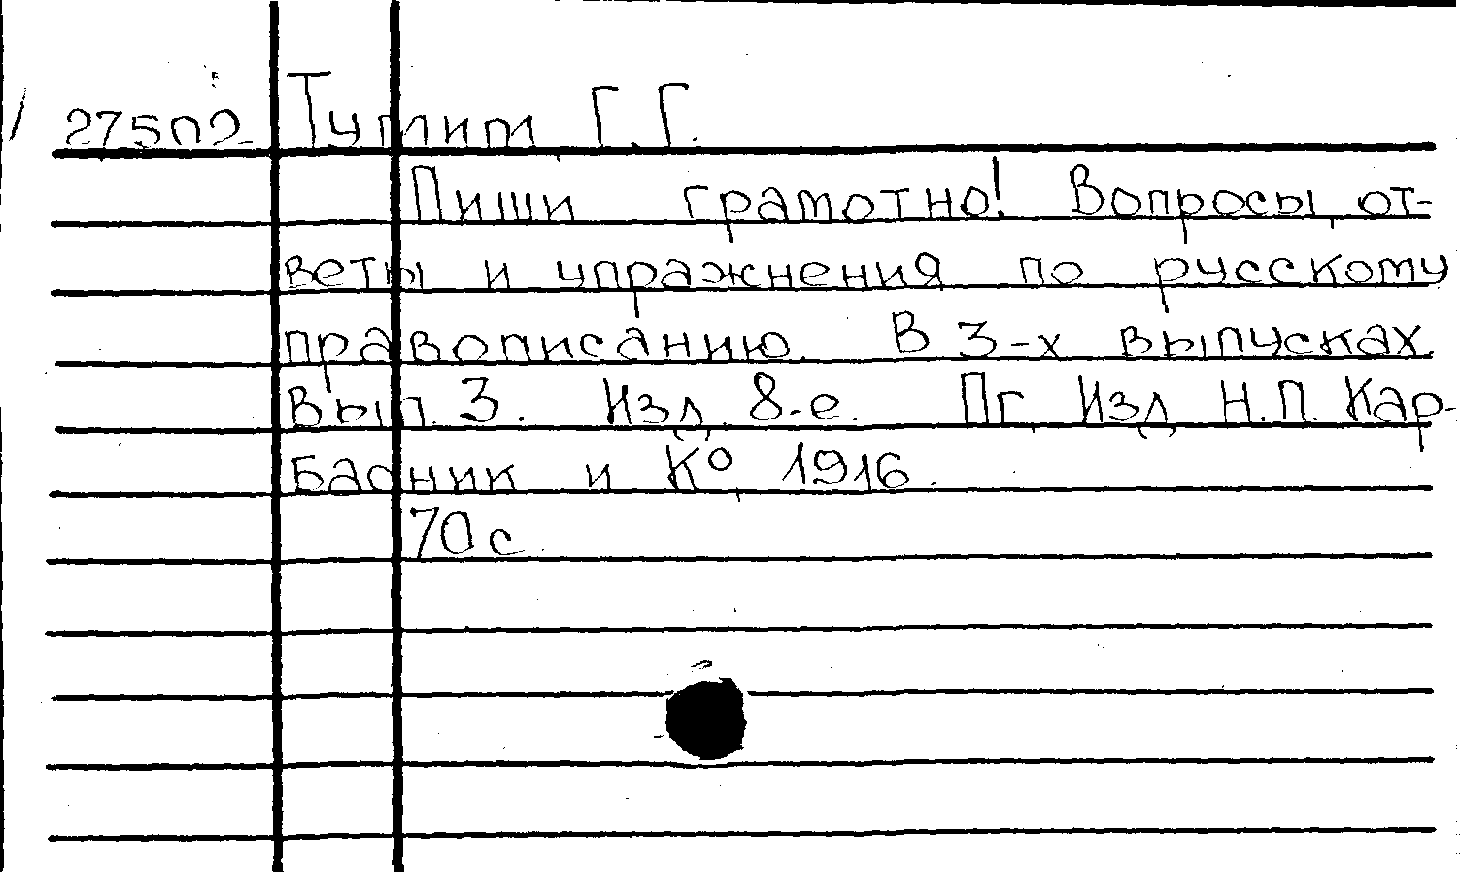 27502 Тумим Г.Г.
Пиши грамотно! Вопросы, от-
веты и упражнения по русскому
правописанию. В 3-х выпусках.
Вып. 3. Изд. 8-е. Пг., Изд. Н.П. Кар-
басник и Ко, 1916.
70 с.